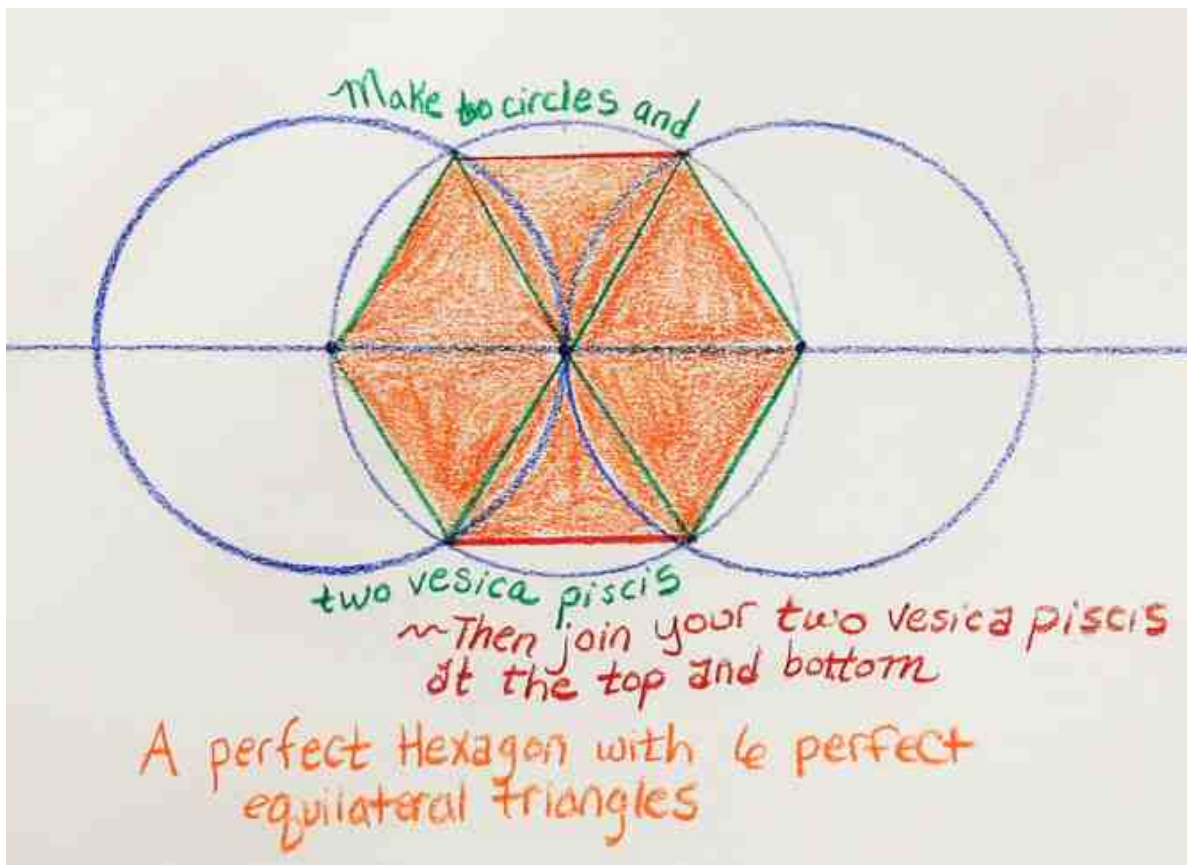 ~Make circles and
two vesica piscis
~Then join your two vesica piscis
at the top and bottom
A perfect Hexagon with 6 perfect
equilateral triangles